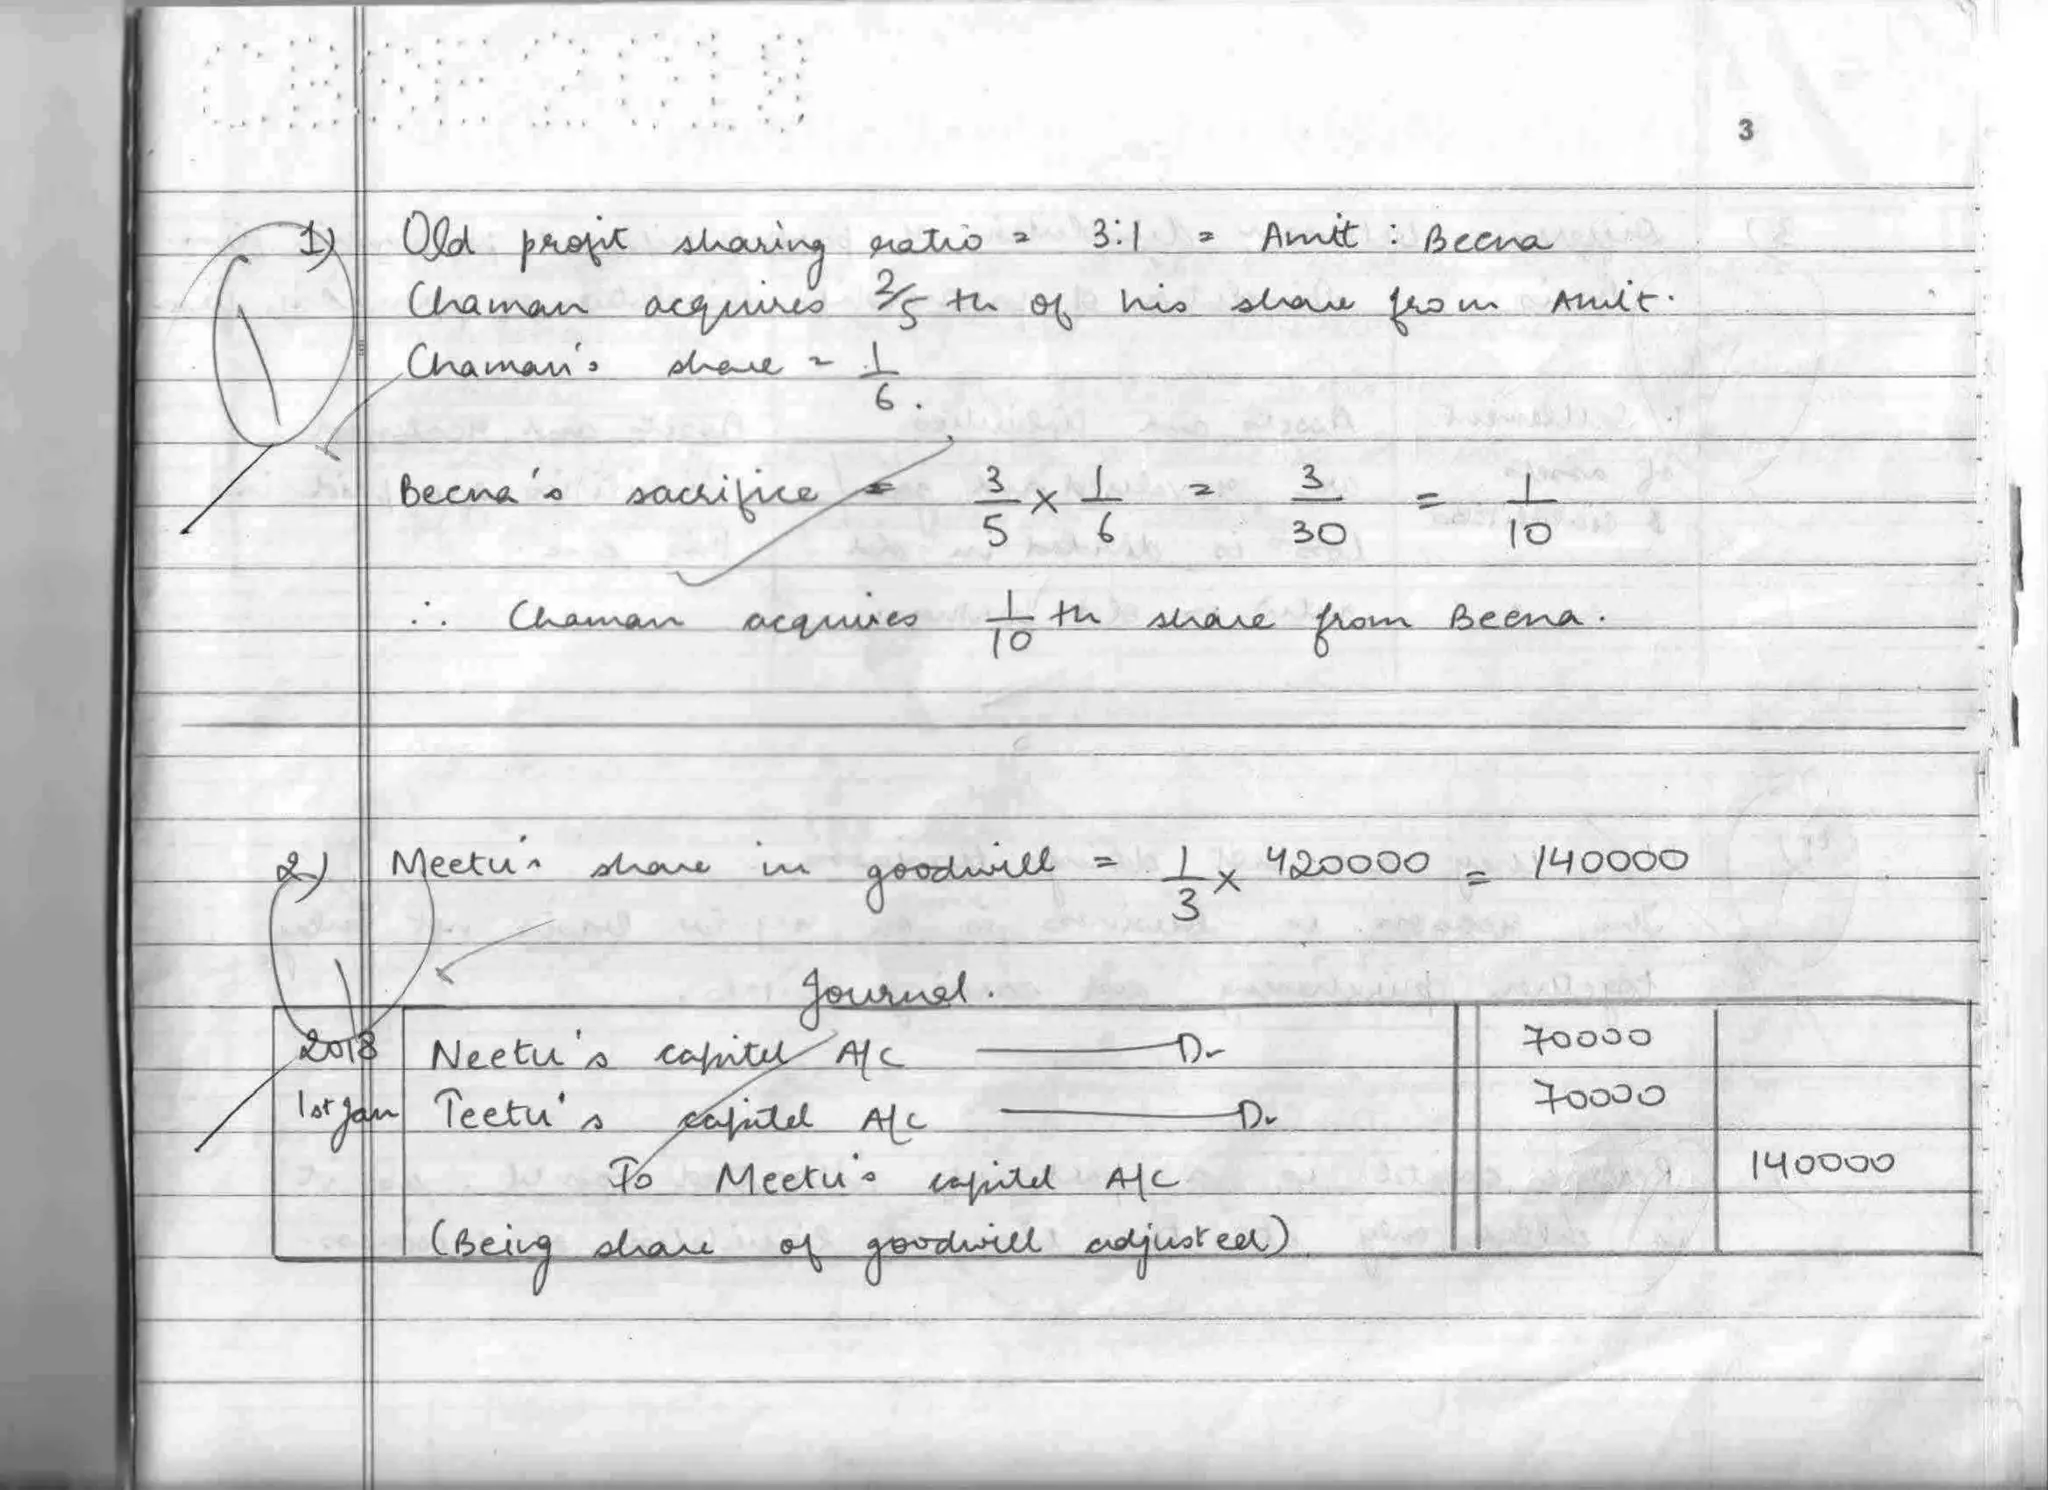 CBSE 2018
3
1) Old profit sharing ratio = 3:1 = Amit : Beena
Chaman acquires 2/5 th of his share from Amit.
Chaman's share = 1/6.
Beena's sacrifice = 3/5 × 1/6 = 3/30 = 1/10
∴ Chaman acquires 1/10 th share from Beena.
2) Meetu's share in goodwill = 1/3 × 420000 = 140000
Journal.
2018 Neetu's capital A/c Dr 70000
1st Jan Teetu's capital A/c Dr 70000
To Meetu's capital A/c 140000
(Being share of goodwill adjusted)